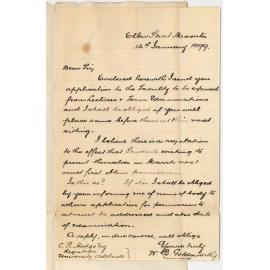 Ellen Street Moonta
12th January 1899.
Dear Sir,
Enclosed herewith I send you
application to the Faculty to be exempted
from Lectures & Term Examinations
and I shall be obliged if you will
place same before them at this next
sitting.
I believe there is a regulation
to the effect that Students wishing to
present themselves in March next
must first obtain permission.
Is this so? If so I shall be obliged
by your informing me of name of body to
whom application for permission to
sit must be addressed and also date
of examination.
A reply, in due course, will oblige
Yours truly
C. R. Hodge Esq
Registrar
University Adelaide